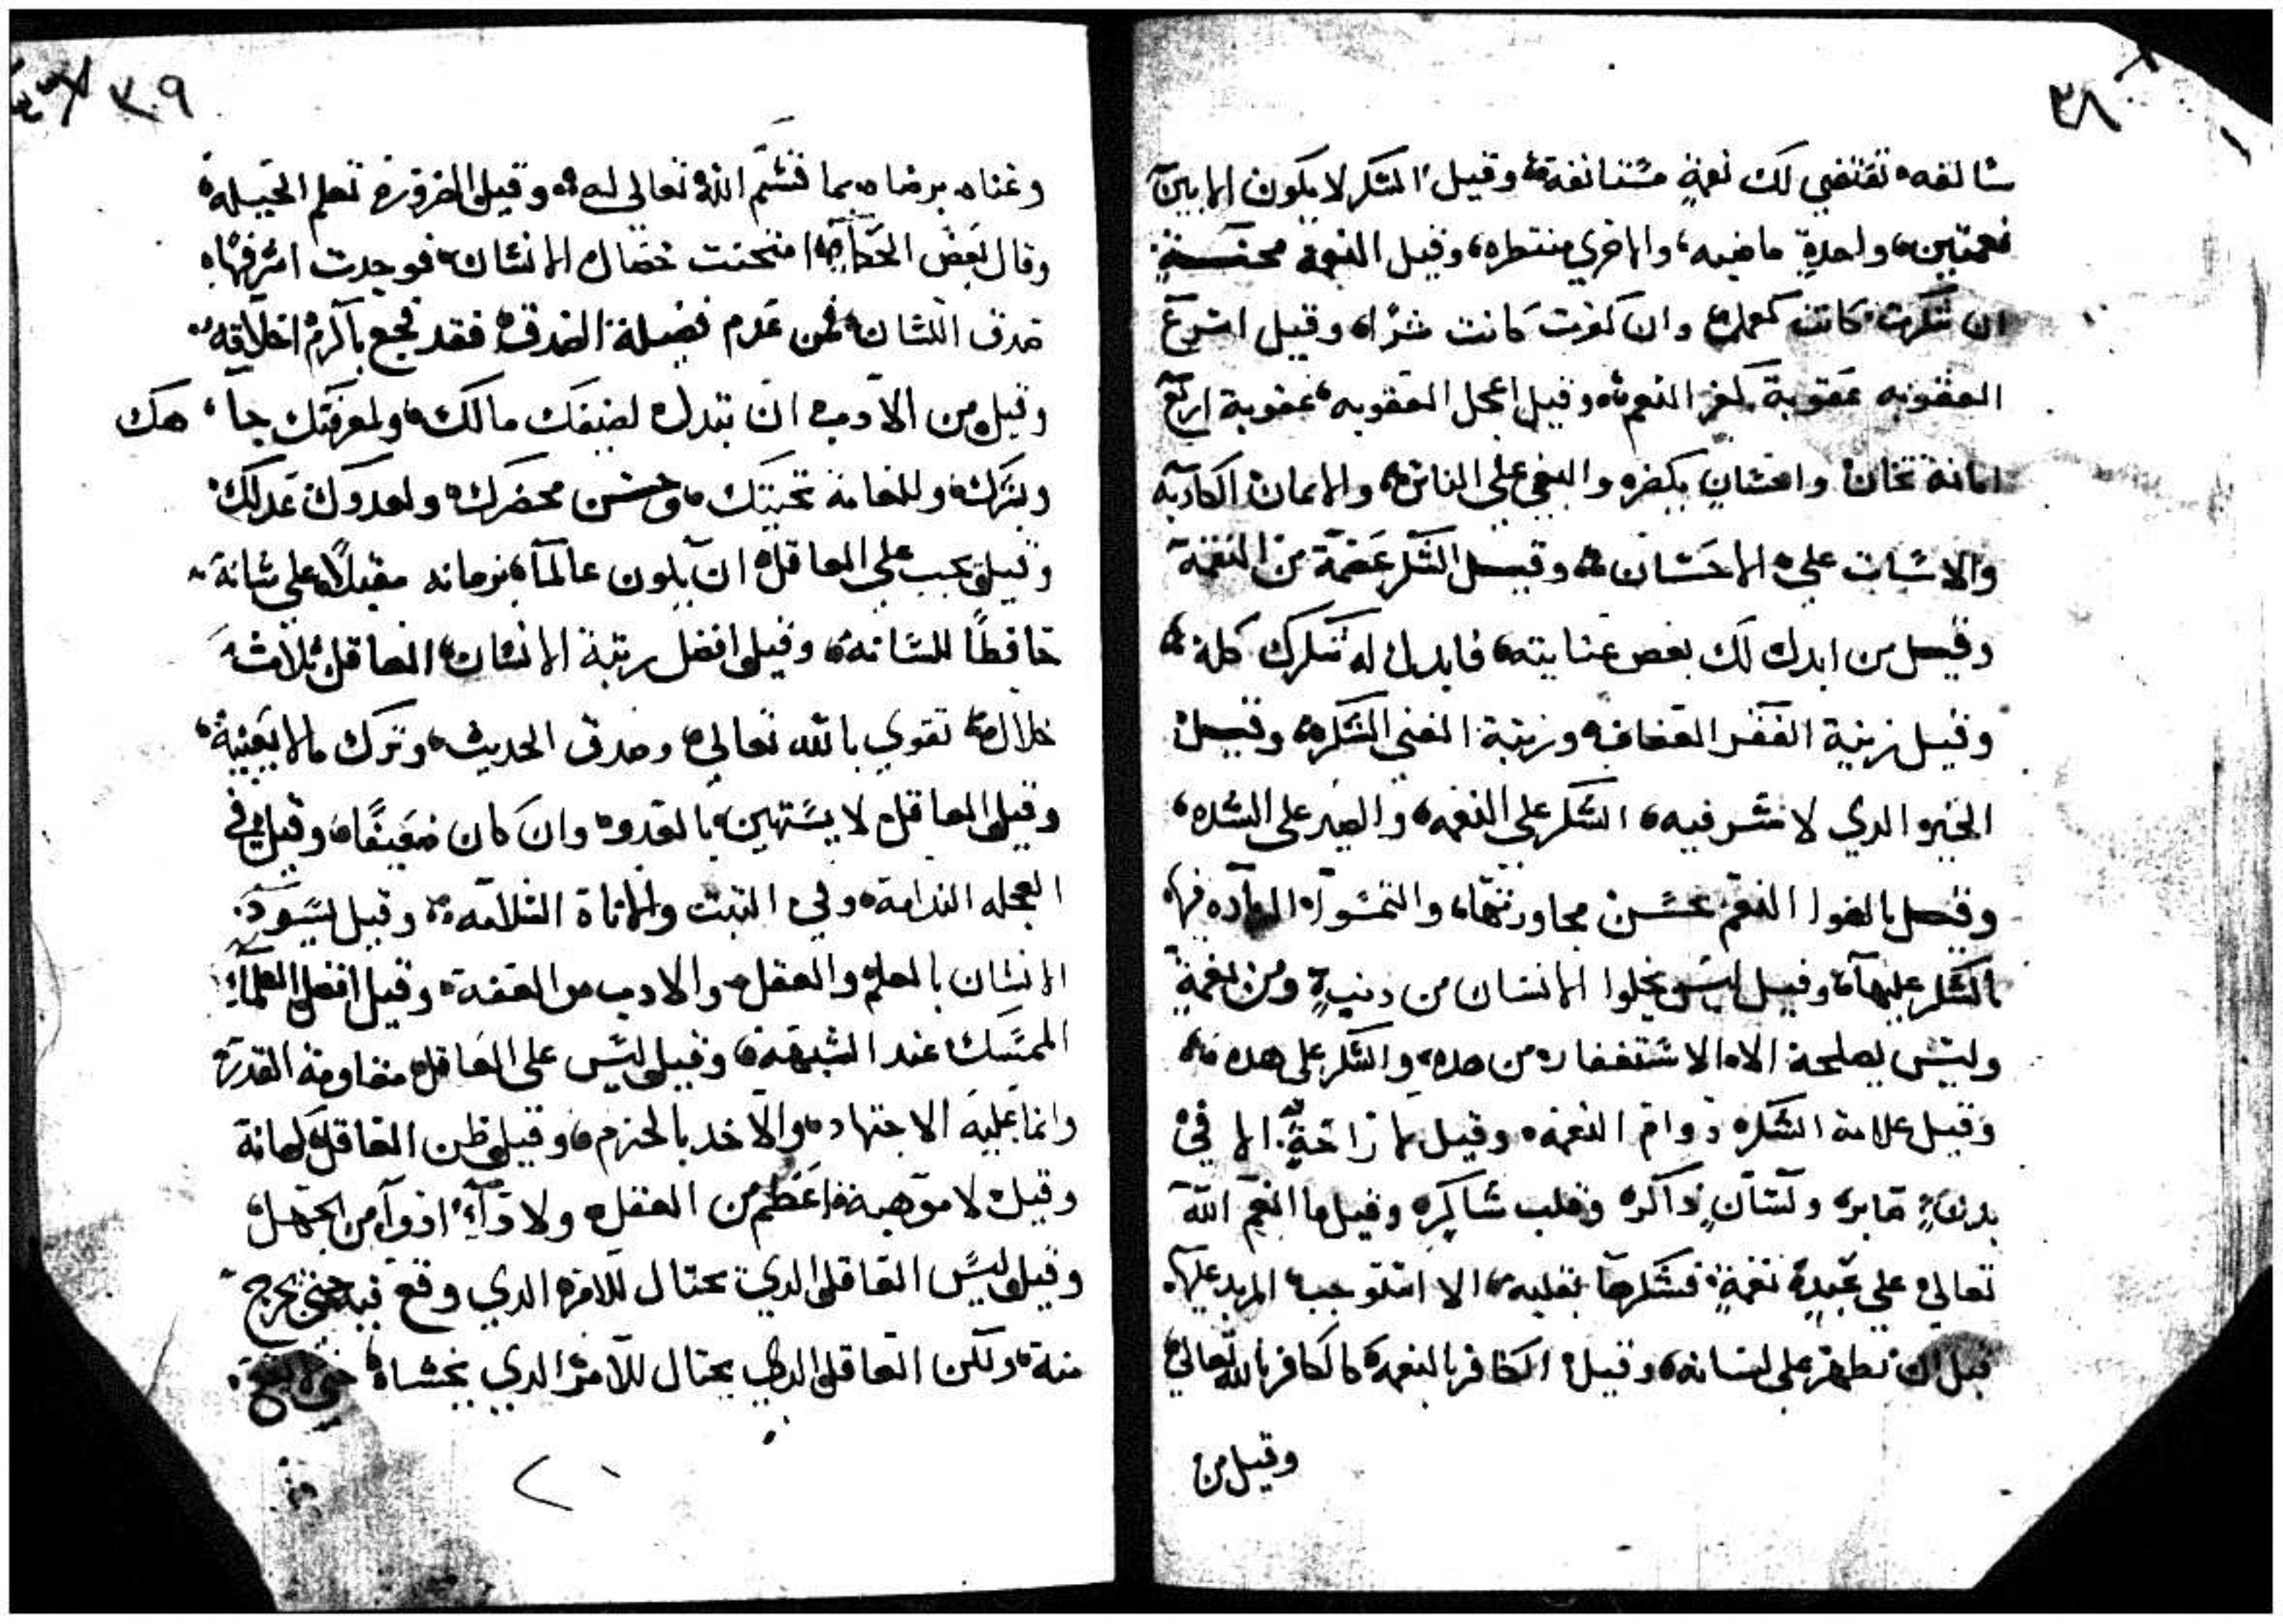 ٣٨
سالفه تقتضي لك نعمةٍ مستانفة وقيل الشكر لا يكون الا بين
نعمتين واحدةٍ ماضيه والاخري منتظره وقيل النعمة
ان شكرت كانت وان كفرت كانت وقيل اسرع
العقوبه عقوبة كفر النعم وقيل اعجل العقوبه عقوبة اربع
امانة تخان واحسان يكفر والبغي علي الناس والايمان الكادبه
والاسات علي الاحسان وقيل الشكر عصمة من النقمة
وقيل من ابدل لك بعض عنايته فابدل له شكرك كله
وقيل زينة الفقر العفاف وزينة الغني الشكر وقيل
الخير الدي لا شر فيه الشكر علي النعمه والصبر علي الشده
وقيل النعم بحسن مجاورتها والتمسوا فيها
بالشكر عليها وقيل ليس يخلوا الانسان من دنبٍ ومن نعمةٍ
وليس يصلحة الا الاستغفار من هده والشكر علي هده
وقيل علامة الشكر دوام النعمه وقيل لا راحةٍ الا في
بدنٍ صابر ولسانٍ داكر وقلب شاكر وقيل ما انعم الله
تعالي علي عبده نعمةٍ فشكرها بقلبه الا استوجب المزيد عليها
قبل ان تظهر علي لسانه وقيل الكافر بالنعمة كالكافر بالله تعالي
وقيل من
٣٠٩
وغناه برضاه بما قسم الله تعالي له وقيل الضرورة تعلم الحيلة
وقال بعض الحكما امتحنت خصال الانسان فوجدت اشرفها
صدق اللسان فمن عدم فضيلة الصدق فقد فجع باكرم اخلاقه
وقيل من الادب ان تبدل لصيفك مالك ولمعرفتك جا هك
وبشرك وللعامة تحيتك وحسن محضرك ولعدوك عدلك
وقيل يجب علي العاقل ان يكون عالماً بزمانه مقبلاً علي شانة
حافظاً للسانه وقيل افضل رتبة الانسان العاقل بثلاثة
خلال تقوي بالله تعالي وصدق الحديث وترك ما لا يعنية
وقيل العاقل لا يستهين بالعدو وان كان ضعيفاً وقيل في
العجله الندامة وفي التبت والاناة السلامه وقيل يسود
الانسان بالعلم والعقل والادب من العفة وقيل افضل العلما
الممسك عند الشبهة وقيل ليس علي العاقل مقاومة القدرة
وانما علية الاجتهاد والاخد بالحزم وقيل ظن العاقل كهانة
وقيل لا موهبة اعظم من العقل ولا داء ادوا من الجهل
وقيل ليس العاقل الدي يحتال للامر الدي وقع فيه حتي يخرج
منة ولكن العاقل الدي يحتال للامر الدي يخشاه